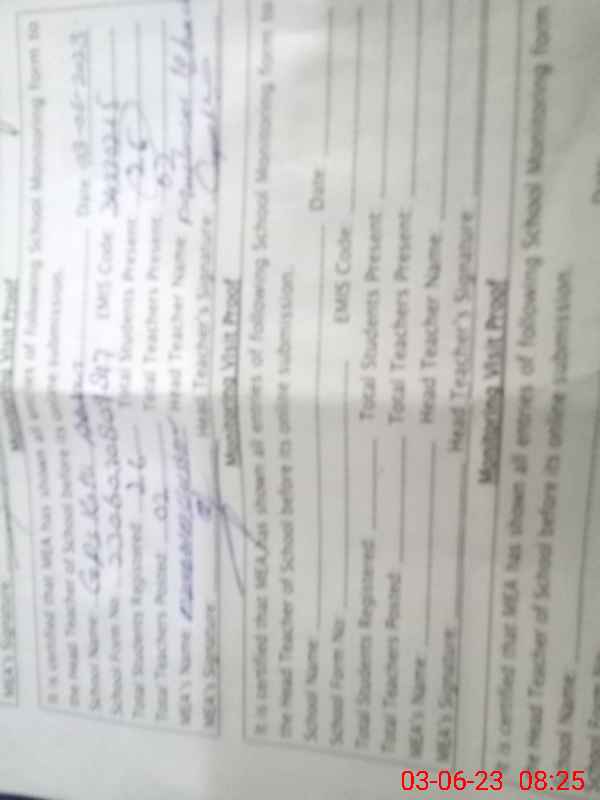 MEA's Signature
Monitoring Visit Proof
It is certified that MEA has shown all entries of following School Monitoring Form to
the Head Teacher of School before its online submission.
School Name: Date 03-06-2023
School Form No: EMIS Code
Total Students Registered 26 Total Students Present
Total Teachers Posted 02 Total Teachers Present 02
MEA's Name Head Teacher Name
MEA's Signature Head Teacher's Signature
Monitoring Visit Proof
It is certified that MEA has shown all entries of following School Monitoring Form to
the Head Teacher of School before its online submission.
School Name: Date
School Form No: EMIS Code
Total Students Registered Total Students Present
Total Teachers Posted Total Teachers Present
MEA's Name Head Teacher Name
MEA's Signature Head Teacher's Signature
Monitoring Visit Proof
It is certified that MEA has shown all entries of following School Monitoring Form
the Head Teacher of School before its online submission.
School Name: Date
School Form No
03-06-23 08:25